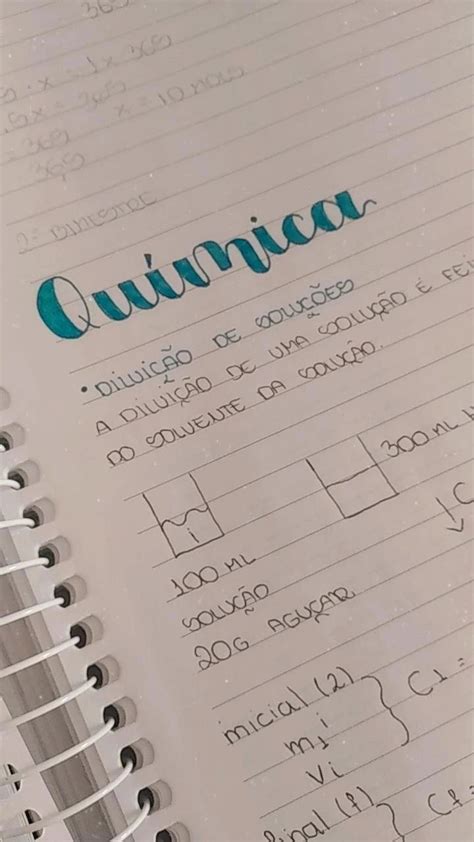 365
5 · x = 1 x 365
,5x = 365
= 365 x = 10 mols
365
2º BIMESTRE
Química
• DILUIÇÃO DE SOLUÇÕES
A DILUIÇÃO DE UMA SOLUÇÃO É FEI
DO SOLVENTE DA SOLUÇÃO.
300 ML
i
100 ML
SOLUÇÃO
20G AGUÇAR
C
inicial (2)
m1 i
Vi
C1 =
final (f)
Cf =